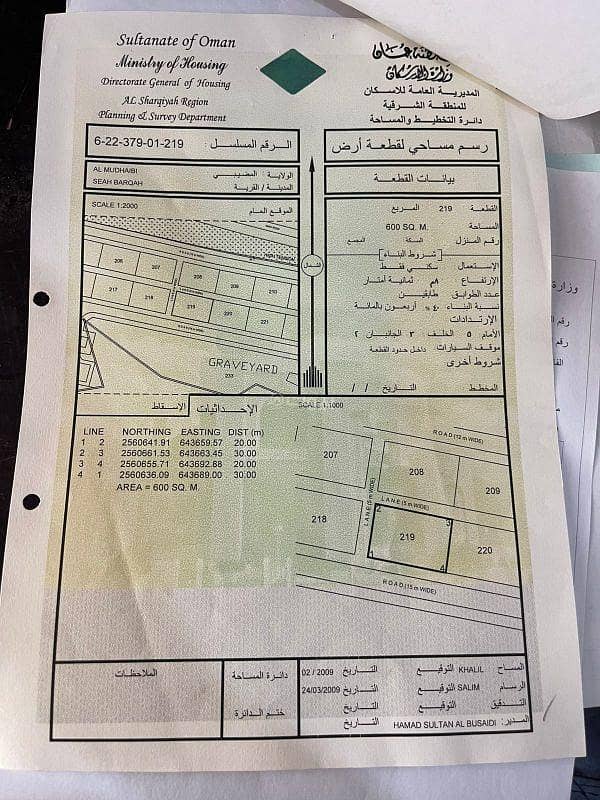 Sultanate of Oman
Ministry of Housing
Directorate General of Housing
AL Sharqiyah Region
Planning & Survey Department
وزارة الإسكان
المديرية العامة للاسكان
للمنطقة الشرقية
دائرة التخطيط والمساحة
6-22-379-01-219 الرقم المسلسل :
رسم مساحي لقطعة أرض
AL MUDHAIBI الولاية المضيبي
SEAH BARQAH المدينة / القرية
بيانات القطعة
SCALE 1:2000 الموقع العام
206
207
208
209
210
217
218
219
220
221
GRAVEYARD
233
شمال
القطعة 219 المربع
المساحة 600 SQ. M.
رقم المنزل السكة المجمع
شروط البناء
الإستعمال سكني فقط
الإرتفاع ٨م ثمانية أمتار
عدد الطوابق طابقين
نسبة البناء ٤٠% أربعون بالمائة
الإرتدادات
الأمام ٥ الخلف ٣ الجانبان ٢
موقف السيارات داخل حدود القطعة
شروط أخرى
المخطط التاريخ / /
الإحداثيات الإسقاط
LINE NORTHING EASTING DIST (m)
1 2 2560641.91 643659.57 20.00
2 3 2560661.53 643663.45 30.00
3 4 2560655.71 643692.88 20.00
4 1 2560636.09 643689.00 30.00
AREA = 600 SQ. M.
SCALE 1:1000
ROAD (12 m WIDE)
207
208
209
LANE (5 m WIDE)
LANE (5 m WIDE)
218
2
3
219
220
1
4
ROAD (15 m WIDE)
الملاحظات
دائرة المساحة
ختم الدائرة
المساح KHALIL التوقيع التاريخ 02 / 2009
الرسام SALIM التوقيع التاريخ 24/03/2009
التدقيق التوقيع التاريخ
المدير: HAMAD SULTAN AL BUSAIDI التاريخ
وزارة
رقم
رقم